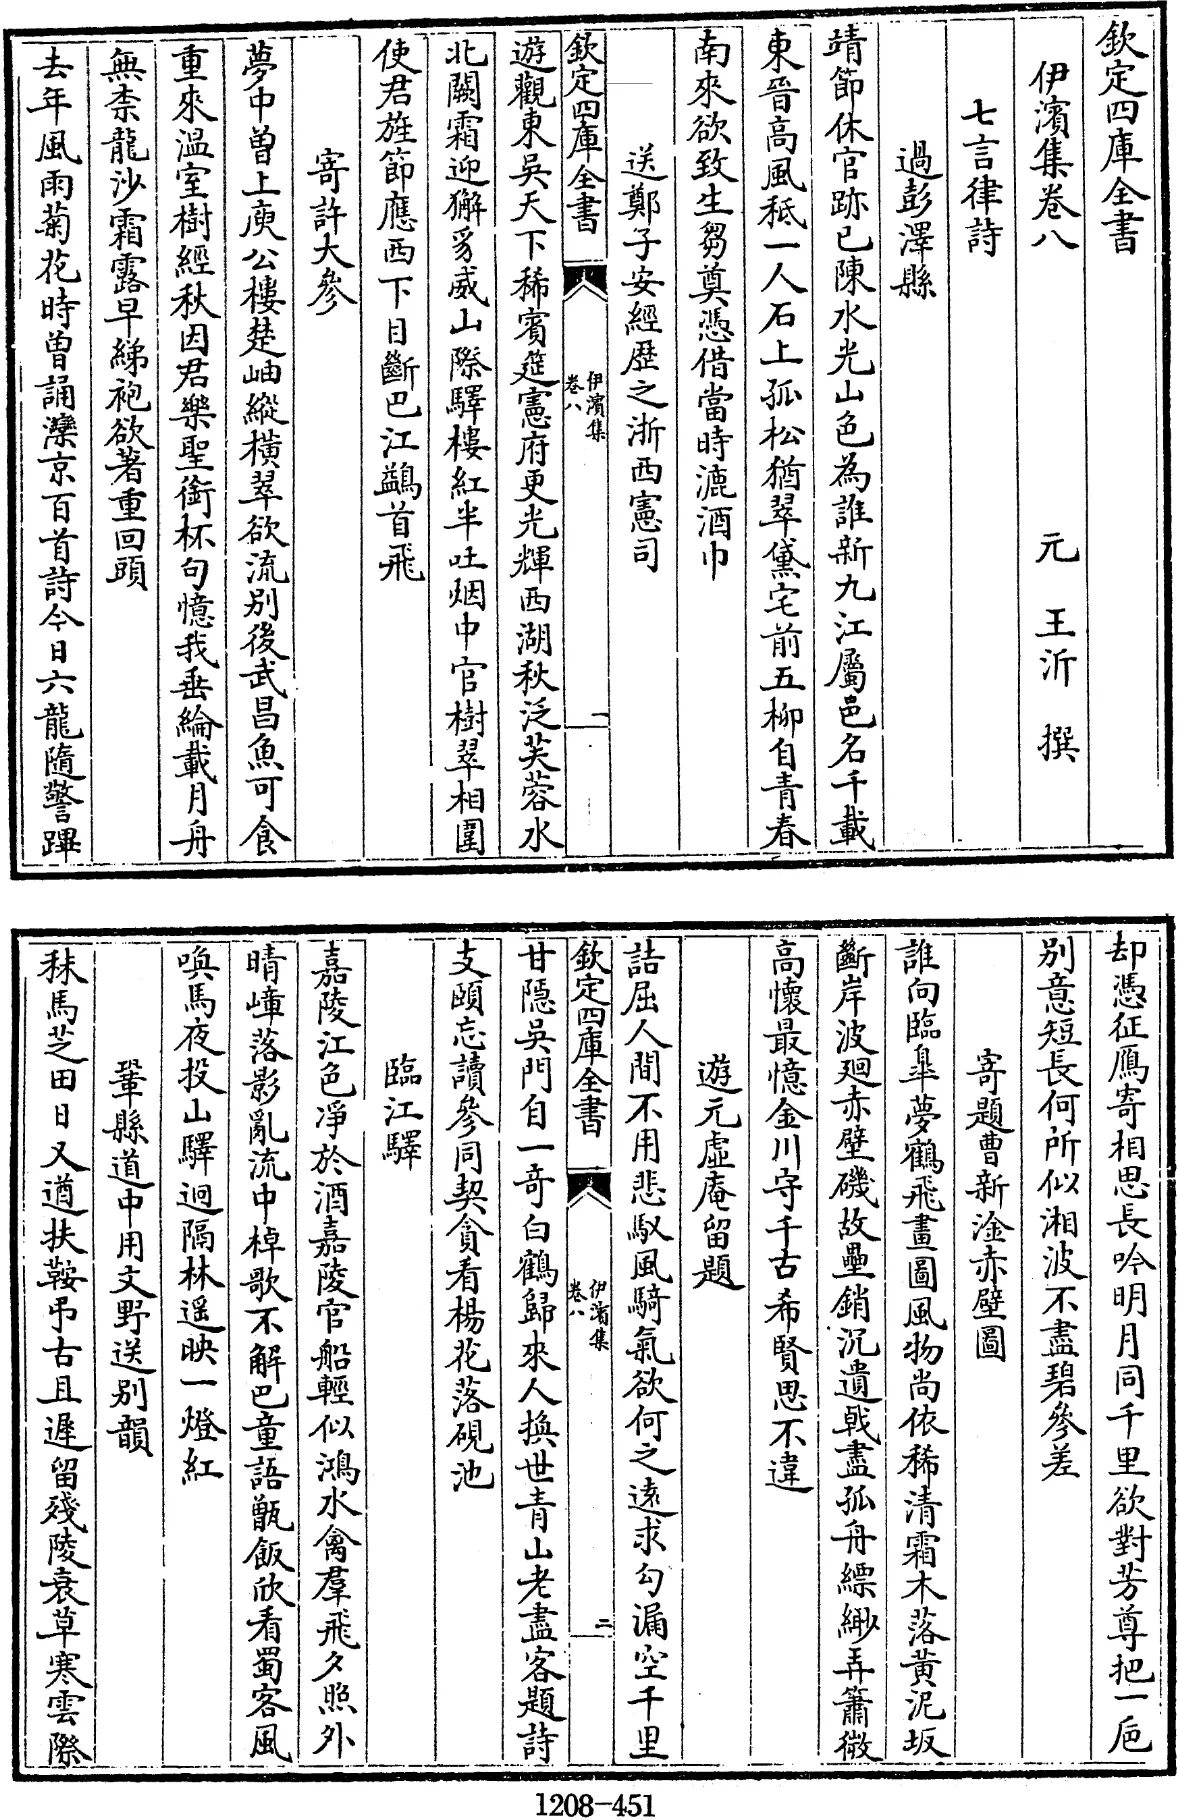 欽定四庫全書
伊濱集卷八
元 王沂 撰
七言律詩
過彭澤縣
靖節休官跡已陳水光山色為誰新九江屬邑名千載
東晉高風秪一人石上孤松猶翠黛宅前五柳自青春
南來欲致生芻奠憑借當時漉酒巾
送鄭子安經歷之浙西憲司
欽定四庫全書
伊濱集
卷八
一
遊觀東吳天下稀賓筵憲府更光輝西湖秋泛芙蓉水
北闕霜迎獬豸威山際驛樓紅半吐烟中官樹翠相圍
使君旌節應西下目斷巴江鷁首飛
寄許大參
夢中曾上庾公樓楚岫縱橫翠欲流別後武昌魚可食
重來溫室樹經秋因君樂聖銜杯句憶我垂綸載月舟
無柰龍沙霜露早綈袍欲著重回頭
去年風雨菊花時曾誦灤京百首詩今日六龍隨警蹕
却憑征鴈寄相思長吟明月同千里欲對芳尊把一巵
別意短長何所似湘波不盡碧參差
寄題曹新淦赤壁圖
誰向臨臯夢鶴飛畫圖風物尚依稀清霜木落黃泥坂
斷岸波廻赤壁磯故壘銷沉遺戟盡孤舟縹緲弄簫微
高懷最憶金川守千古希賢思不違
遊元虛庵留題
詰屈人間不用悲馭風騎氣欲何之遠求勾漏空千里
欽定四庫全書
伊濱集
卷八
二
甘隱吳門自一奇白鶴歸來人換世青山老盡客題詩
支頤忘讀參同契貪看楊花落硯池
臨江驛
嘉陵江色凈於酒嘉陵官船輕似鴻水禽羣飛夕照外
晴嶂落影亂流中棹歌不解巴童語甑飯欣看蜀客風
喚馬夜投山驛迥隔林遥映一燈紅
鞏縣道中用文野送別韻
秣馬芝田日又遒扶鞍弔古且遲留殘陵衰草寒雲際
1208-451